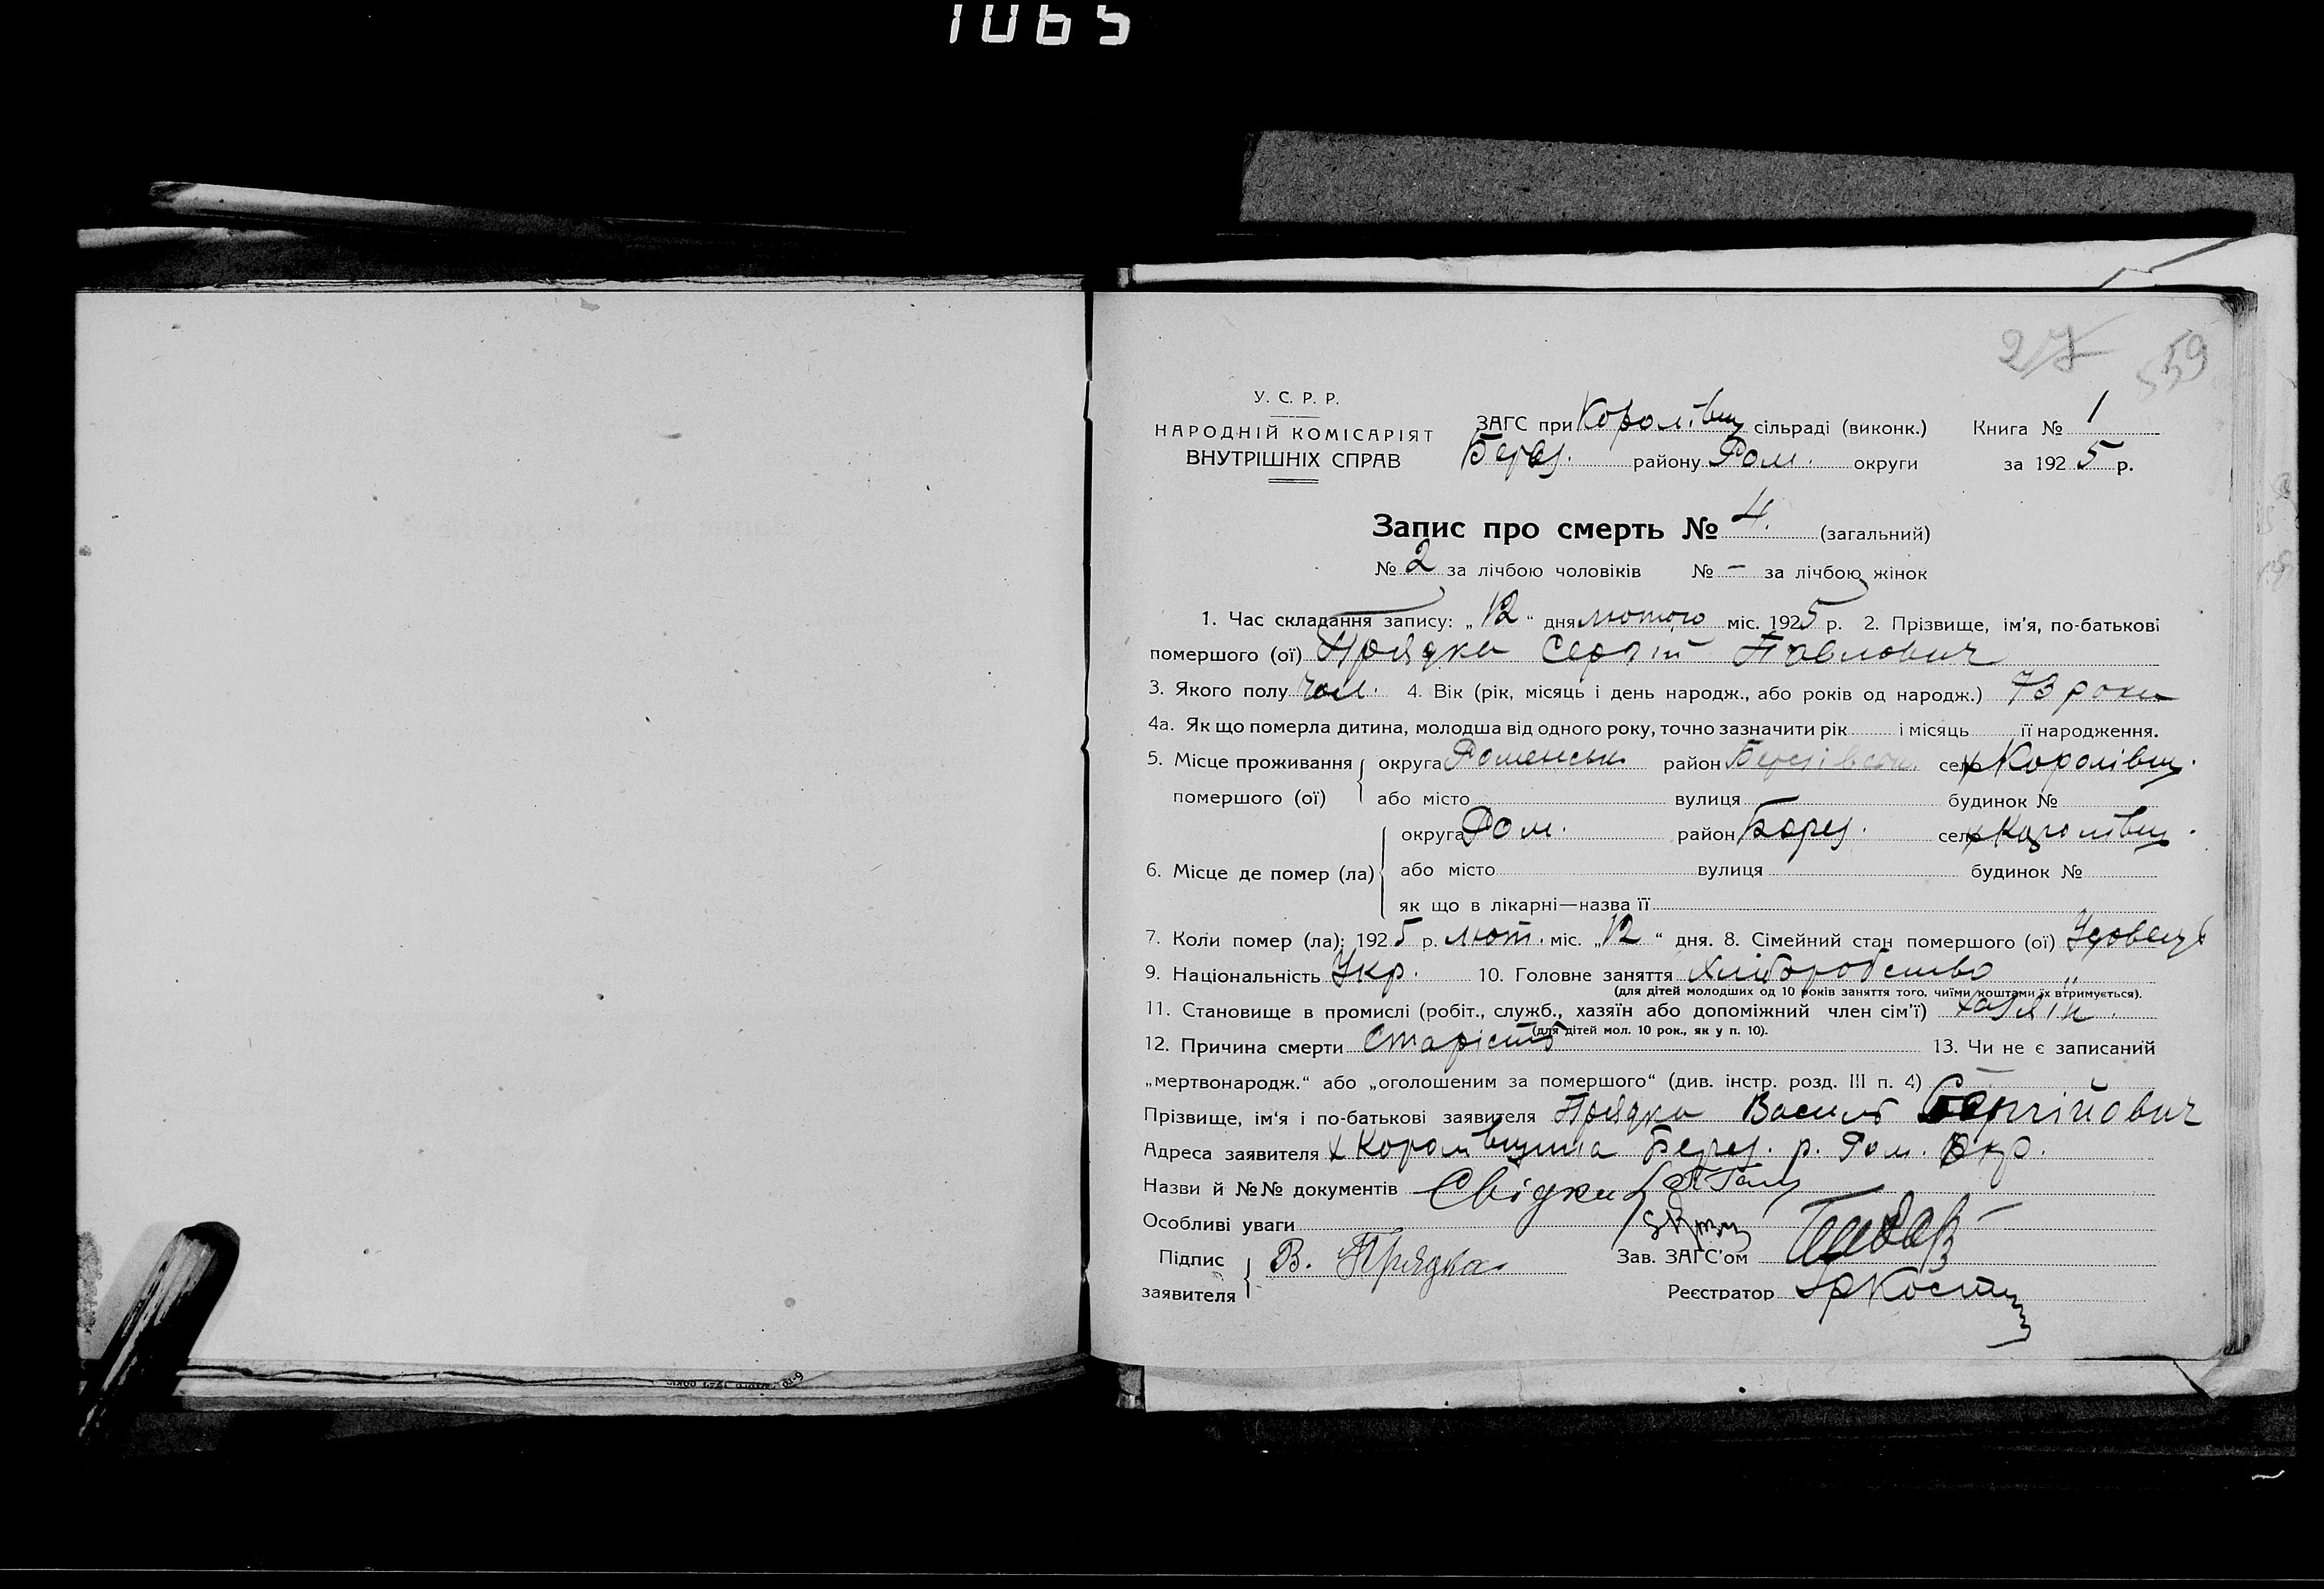 1065
27 559
У. С. Р. Р.
НАРОДНІЙ КОМІСАРІЯТ
ВНУТРІШНІХ СПРАВ
ЗАГС при Королівщ сільраді (виконк.) Книга № 1
Берез. району Ром. округи за 1925 р.
Запис про смерть № 4. (загальний)
№ 2 за лічбою чоловіків № – за лічбою жінок
1. Час складання запису: „12“ дня лютого міс. 1925 р. 2. Прізвище, ім'я, по-батькові
помершого (ої) Прядка Сергій Павлович
3. Якого полу чол. 4. Вік (рік, місяць і день народж., або років од народж.) 73 роки
4а. Як що померла дитина, молодша від одного року, точно зазначити рік і місяць її народження.
5. Місце проживання округа Роменськ. район Березівськ. село х Королівщ.
помершого (ої) або місто вулиця будинок №
округа Ром. район Берез. село х Королівщ.
6. Місце де помер (ла) або місто вулиця будинок №
як що в лікарні—назва її
7. Коли помер (ла): 1925 р. лют. міс. „12“ дня. 8. Сімейний стан помершого (ої) Удовець
9. Національність Укр. 10. Головне заняття Хліборобство
(для дітей молодших од 10 років заняття того, чиїми коштами їх втримується).
11. Становище в промислі (робіт., служб., хазяїн або допоміжний член сім'ї) хазяїн.
(для дітей мол. 10 рок., як у п. 10).
12. Причина смерти Старість 13. Чи не є записаний
„мертвонародж.“ або „оголошеним за помершого“ (див. інстр. розд. III п. 4) –
Прізвище, ім'я і по-батькові заявителя Прядка Василь Сергійович
Адреса заявителя х Королівщина Берез. р. Ром. Окр.
Назви й №№ документів Свідки
Особливі уваги
Підпис
заявителя В. Прядка
Зав. ЗАГС'ом
Реєстратор